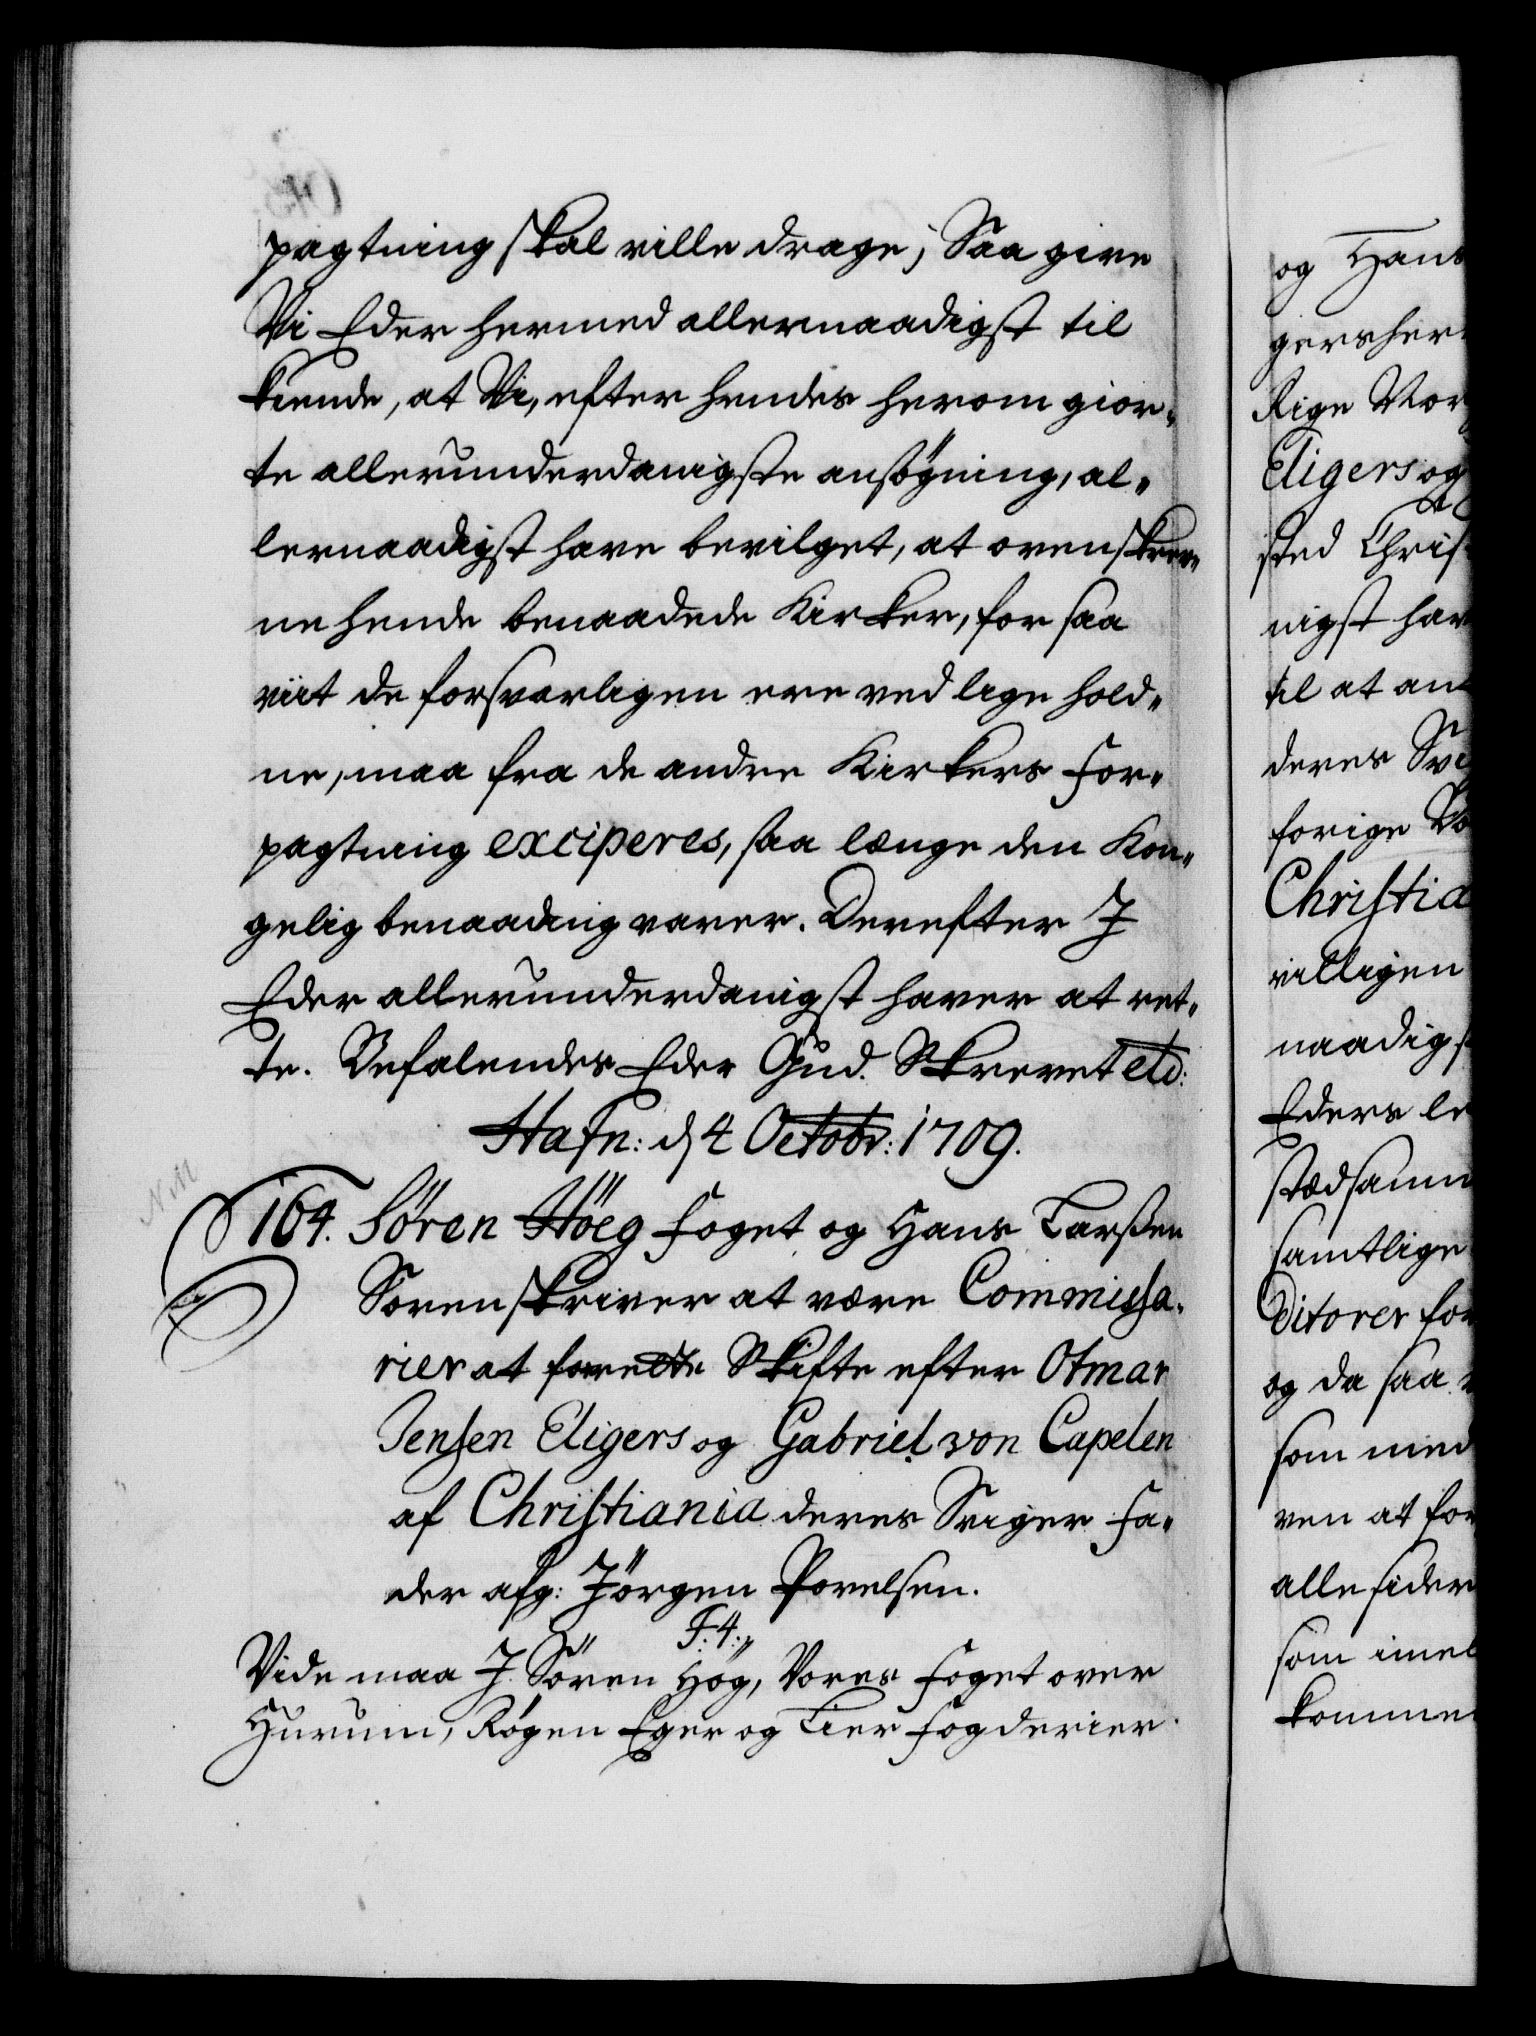 pagtning skal ville drage; Saa give
Vi Eder hermed allernaadigst til
kiende, at Vi, efter hendes herom gior„
te allerunderdanigste ansøgning, al„
lernaadigst have bevilget, at ovenskrev„
ne hende benaadede Kirker, for saa
viit de forsvarligen ere ved lige hold„
ne, maa fra de andre Kirkers For„
pagtning exciperes, saa længe den Kon„
gelig benaading varer. Derefter I
Eder allerunderdanigst haver at ret„
te. Befalendes Eder Gud. Skrevet etc:
Hafn: d 4 Octobr: 1709.
164. Sören Höeg Foget og Hans Larßen
Sorenskriver at være Commissa„
rier at forrette Skifte efter Otmar
Jensen Eligers og Gabriel von Capelen
af Christiania deres Sviger Fa„
der afg: Jörgen Povelsen.
F: 4:
Vide maa I Sören Hög, Vores Foget over
Hurum, Røgen Eger og Lier Fogderier
og Hans
gersher
Rige Nor
Eligers og
sted Chris
nigst hav
til at an
deres Svi
forige Vo
Christia
villigen
naadigs
Eders le
stædsamm
samtlige
ditorer for
og da saa
som med
ven at for
alle sider
som imel
komme